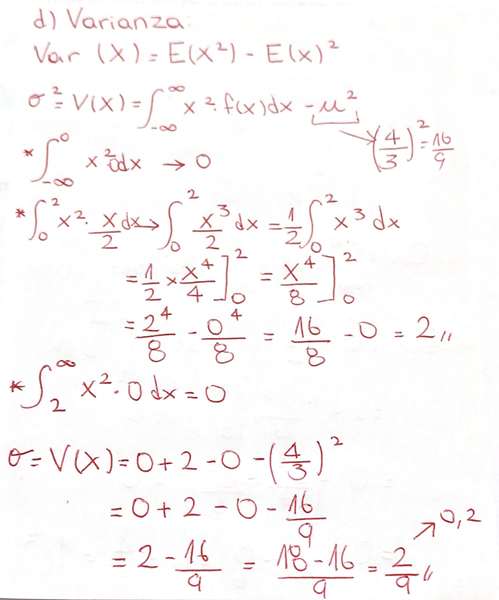 d) Varianza:
Var (X) = E(X²) - E(x)²
σ² = V(X) = ∫_{-∞}^{∞} x² · f(x) dx - μ²
→ (4/3)² = 16/9
* ∫_{-∞}^{0} x² 0dx → 0
* ∫_0^2 x² · x/2 dx → ∫_0^2 x³/2 dx = 1/2 ∫_0^2 x³ dx
= 1/2 × x⁴/4 ]_0^2 = x⁴/8 ]_0^2
= 2⁴/8 - 0⁴/8 = 16/8 - 0 = 2 //
* ∫_2^∞ x² · 0 dx = 0
σ = V(X) = 0 + 2 - 0 - (4/3)²
= 0 + 2 - 0 - 16/9
= 2 - 16/9 = 18 - 16/9 = 2/9 // ↗ 0,2